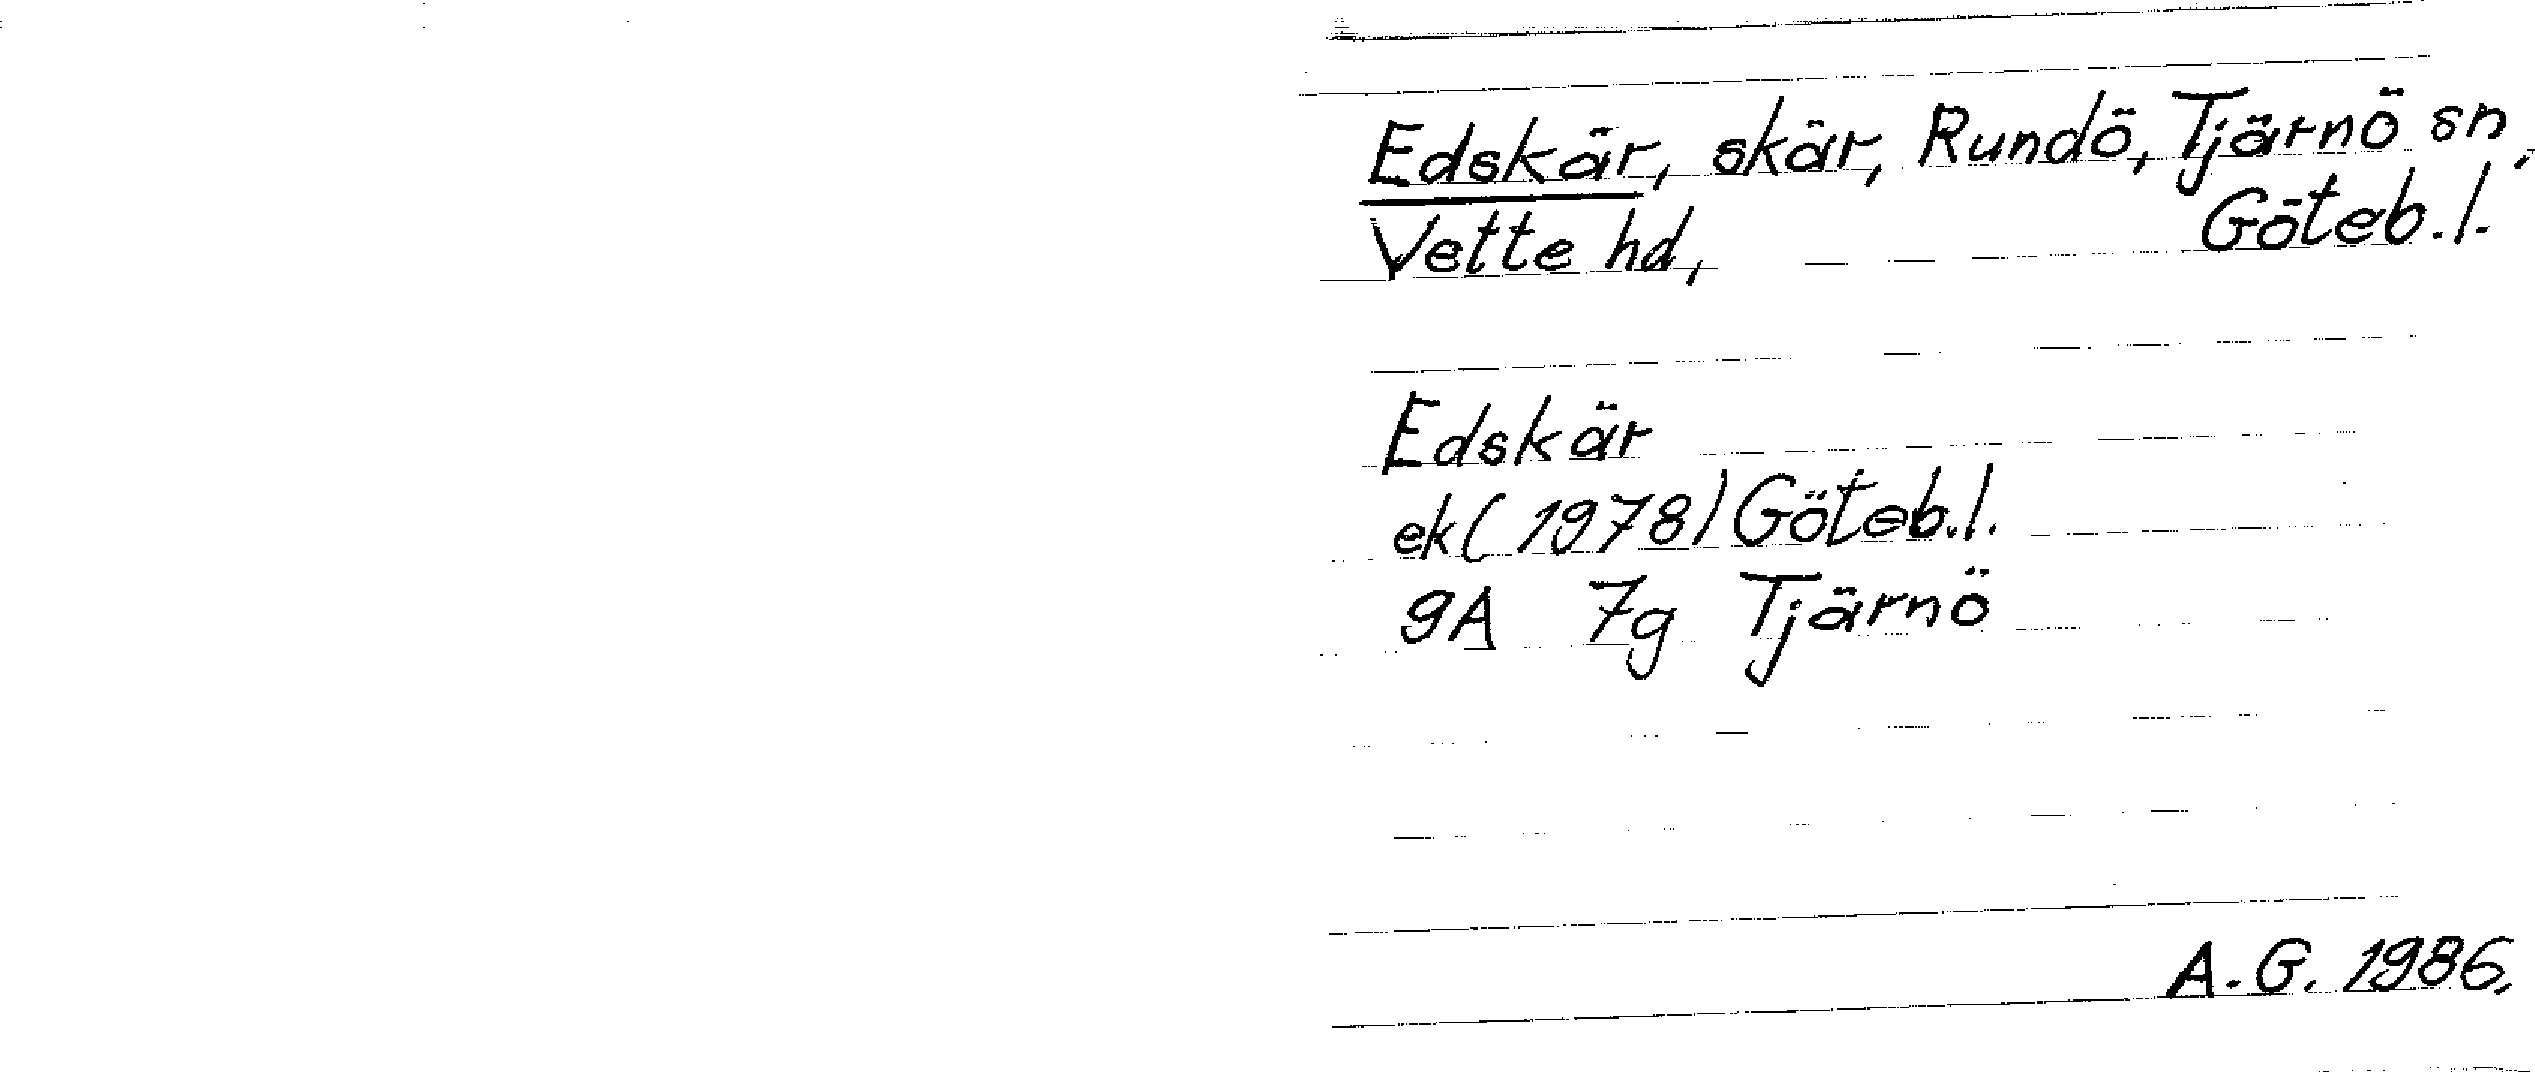 Edskär, skär, Rundö, Tjärnö sn,
Vette hd, Göteb.l.
Edskär
ek(1978) Göteb.l.
9A 7g Tjärnö
A.G. 1986.